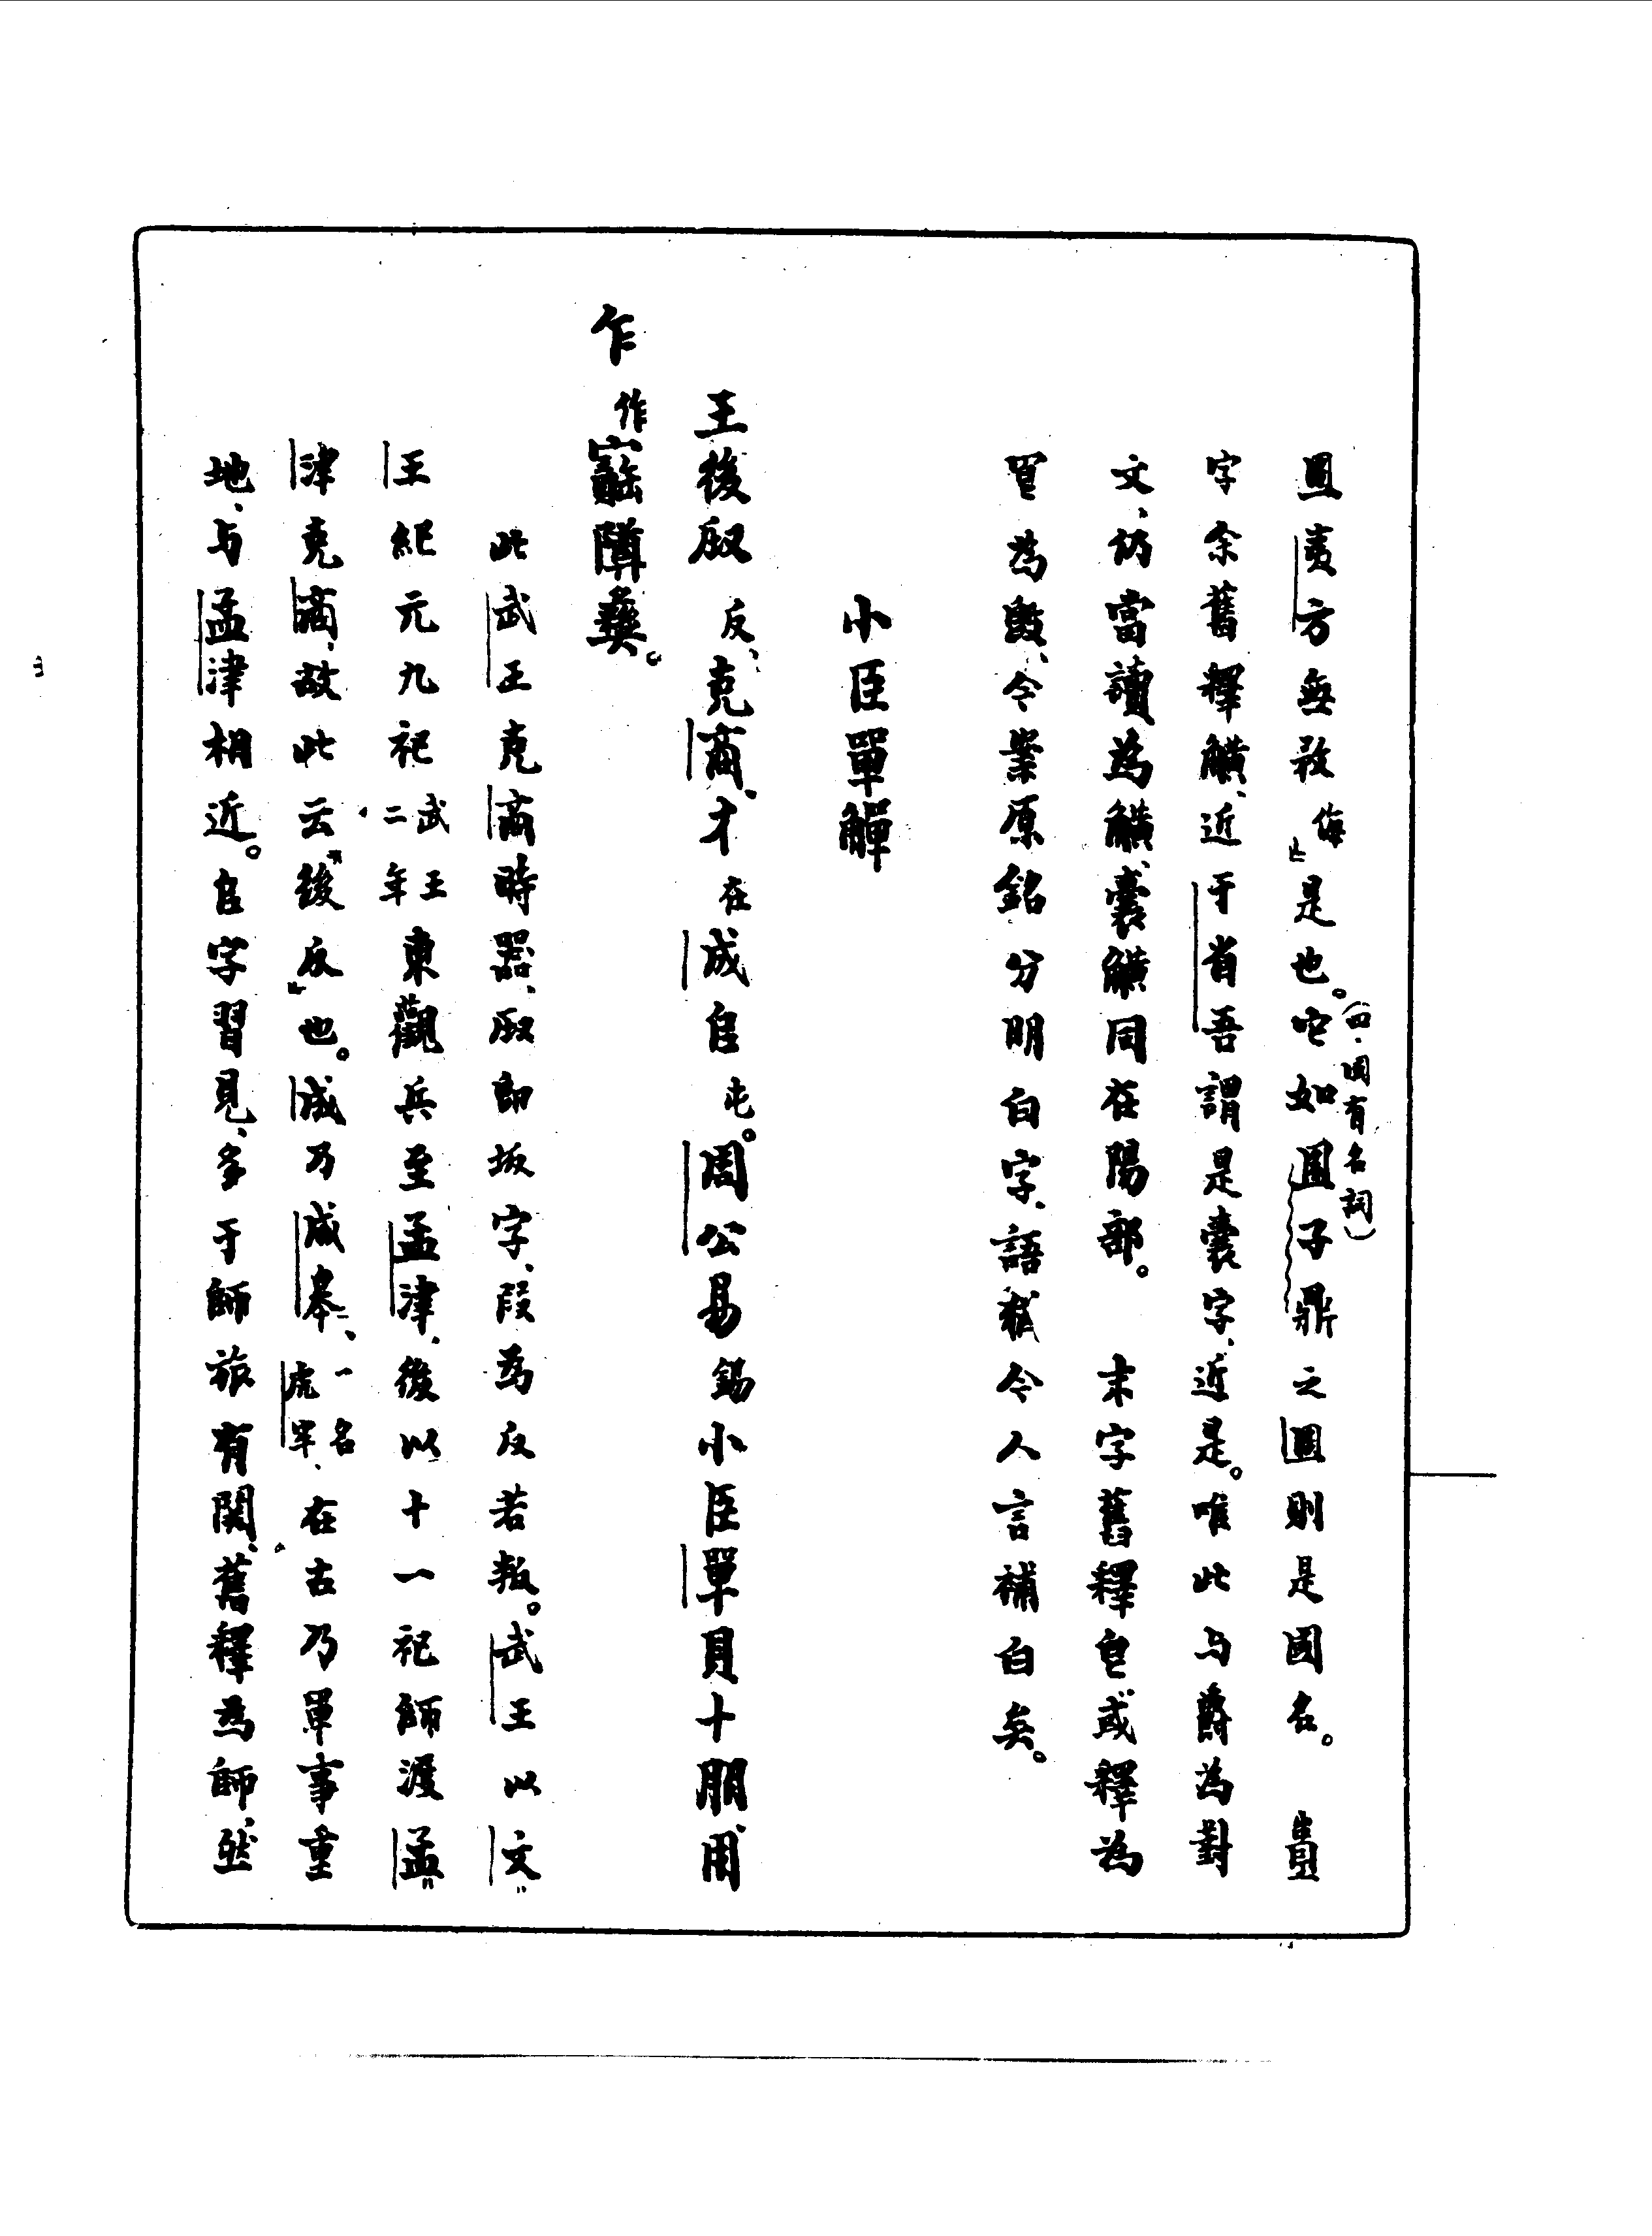 圂夷方無敄(侮)』是也。它如圂子鼎之圂則是國名。 𧵩
(四·固有名詞)
字余舊釋觵、近于省吾謂是囊字、近是。唯此与爵為對
文、仍當讀為觵、囊觵同在陽部。 末字舊釋皀、或釋為
為毁、今案原銘分明白字、語猶今人言補白矣。
小臣單觶
王後㕟(反)、克商、才(在)成𠂤(屯)。周公易(錫)小臣單貝十朋、用
乍(作)寶䵼彝。
此武王克商時器、㕟即坂字、叚為反若叛。武王以文
王紀元九祀(武王二年)東觀兵至孟津、後以十一祀師渡孟
津克商、故此云『後反』也。成乃成皋、(一名虎牢)、在古乃軍事重
地、与孟津相近。𠂤字習見、多于師旅有関、舊釋為師、然